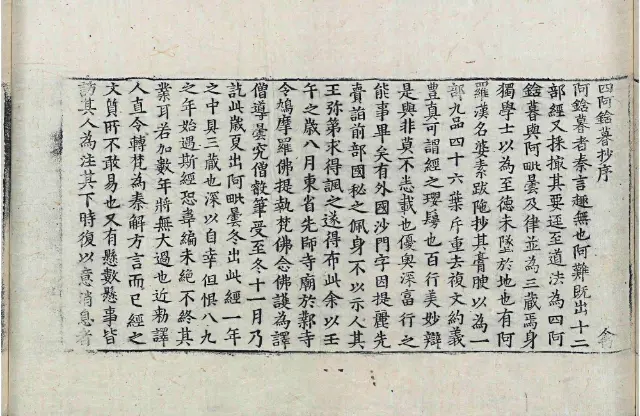 四阿鋡暮抄序 禽
阿鋡暮者秦言趣無也阿難既出十二
部經又採撮其要逕至道法為四阿
鋡暮與阿毗曇及律並為三藏焉身
獨學士以為至德未墜於地也有阿
羅漢名婆素跋陁抄其膏腴以為一
部九品四十六葉斥重去復文約義
豊真可謂經之瓔鬘也百行美妙辯
是與非莫不悉載也優奧深富行之
能事畢矣有外國沙門字因提麗先
賷詣前部國秘之佩身不以示人其
王弥第求得諷之遂得布此余以壬
午之歲八月東省先師寺廟於鄴寺
令鳩摩羅佛提執梵佛念佛護為譯
僧導曇究僧叡筆受至冬十一月乃
訖此歲夏出阿毗曇冬出此經一年
之中具三藏也深以自幸但懼八九
之年始過斯經恐韋編未絕不終其
業耳若加數年將無大過也近勑譯
人直令轉梵為秦解方言而已經之
文質所不敢易也又有懸數懸事皆
訪其人為注其下時復以意消息者